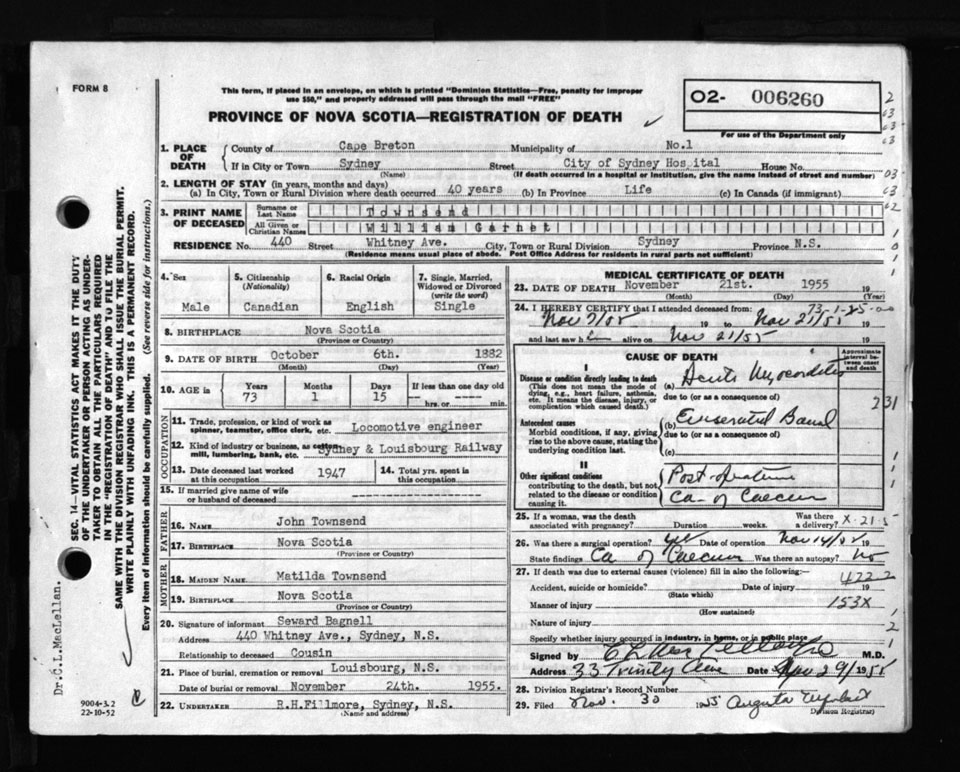 FORM 8
This form, if placed in an envelope, on which is printed "Dominion Statistics—Free, penalty for improper
use $50," and properly addressed will pass through the mail "FREE"
PROVINCE OF NOVA SCOTIA—REGISTRATION OF DEATH
O2- 006260
For use of the Department only
1. PLACE OF DEATH
County of Cape Breton Municipality of No.1
If in City or Town Sydney Street City of Sydney Hospital House No.
(Name) (If death occurred in a hospital or institution, give the name instead of street and number)
2. LENGTH OF STAY (in years, months and days)
(a) In City, Town or Rural Division where death occurred 40 years (b) In Province Life (c) In Canada (if immigrant)
3. PRINT NAME OF DECEASED
Surname or Last Name Townsend
All Given or Christian Names William Garnet
RESIDENCE No. 440 Street Whitney Ave. City, Town or Rural Division Sydney Province N.S.
(Residence means usual place of abode. Post Office Address for residents in rural parts not sufficient)
4. Sex
Male
5. Citizenship
(Nationality)
Canadian
6. Racial Origin
English
7. Single, Married, Widowed or Divorced
(write the word)
Single
8. BIRTHPLACE Nova Scotia
(Province or Country)
9. DATE OF BIRTH October 6th. 1882
(Month) (Day) (Year)
10. AGE in
Years Months Days If less than one day old
73 1 15 hrs. or min.
OCCUPATION
11. Trade, profession, or kind of work as
spinner, teamster, office clerk, etc. Locomotive engineer
12. Kind of industry or business, as cotton-
mill, lumbering, bank, etc. Sydney & Louisbourg Railway
13. Date deceased last worked
at this occupation 1947
14. Total yrs. spent in
this occupation
15. If married give name of wife
or husband of deceased
FATHER
16. NAME John Townsend
17. BIRTHPLACE Nova Scotia
(Province or Country)
MOTHER
18. MAIDEN NAME Matilda Townsend
19. BIRTHPLACE Nova Scotia
(Province or Country)
20. Signature of informant Seward Bagnell
Address 440 Whitney Ave., Sydney, N.S.
Relationship to deceased Cousin
21. Place of burial, cremation or removal Louisbourg, N.S.
Date of burial or removal November 24th. 1955.
22. UNDERTAKER R.H.Fillmore, Sydney, N.S.
(Name and address)
MEDICAL CERTIFICATE OF DEATH
23. DATE OF DEATH November 21st. 1955 19
(Month) (Day) (Year)
24. I HEREBY CERTIFY that I attended deceased from:
Nov 7/55 19 to Nov 21/55
and last saw h alive on Nov 21/55 19
CAUSE OF DEATH
Approximate interval between onset and death
I
Disease or condition directly leading to death
(This does not mean the mode of
dying, e.g., heart failure, asthenia,
etc. It means the disease, injury, or
complication which caused death.)
(a) Acute Myocarditis
due to (or as a consequence of)
Antecedent causes
Morbid conditions, if any, giving
rise to the above cause, stating the
underlying condition last.
(b)
due to (or as a consequence of)
(c)
II
Other significant conditions
contributing to the death, but not
related to the disease or condition
causing it.
Post operative
Ca- of Caecum
25. If a woman, was the death
associated with pregnancy? Duration weeks. Was there a delivery?
26. Was there a surgical operation? yes Date of operation Nov 14/55 19
State findings Ca of Caecum Was there an autopsy? No
27. If death was due to external causes (violence) fill in also the following:—
Accident, suicide or homicide? Date of injury 19
(State which)
4222
Manner of injury 153X
(How sustained)
Nature of injury
Specify whether injury occurred in industry, in home, or in public place
Signed by M.D.
Address 33 Trinity Ave Date Nov 29/1955
28. Division Registrar's Record Number
29. Filed Nov. 30 1955 Augusta
Division Registrar)
SEC. 14—VITAL STATISTICS ACT MAKES IT THE DUTY
OF THE UNDERTAKER OR PERSON ACTING AS UNDER-
TAKER TO OBTAIN ALL THE PARTICULARS REQUIRED
IN THE "REGISTRATION OF DEATH" AND TO FILE THE
SAME WITH THE DIVISION REGISTRAR WHO SHALL ISSUE THE BURIAL PERMIT.
WRITE PLAINLY WITH UNFADING INK. THIS IS A PERMANENT RECORD.
Every item of information should be carefully supplied. (See reverse side for instructions.)
Dr.C.L.MacLellan.
9004-3.2
22-10-52